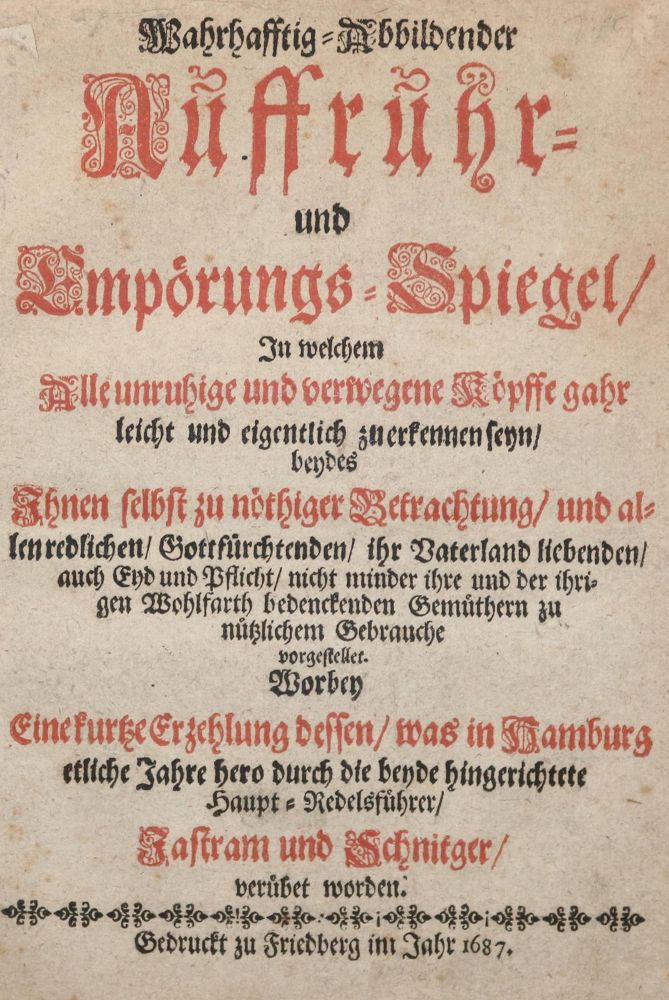 Wahrhafftig-Abbildender
Auffruhr-
und
Empörungs-Spiegel/
In welchem
Alle unruhige und verwegene Köpffe gahr
leicht und eigentlich zuerkennen seyn/
beydes
Ihnen selbst zu nöthiger Betrachtung/ und al-
len redlichen/ Gottfürchtenden/ ihr Vaterland liebenden/
auch Eyd und Pflicht/ nicht minder ihre und der ihri-
gen Wohlfarth bedenckenden Gemüthern zu
nützlichem Gebrauche
vorgestellet.
Worbey
Eine kurtze Erzehlung dessen/ was in Hamburg
etliche Jahre hero durch die beyde hingerichtete
Haupt-Redelsführer/
Jastram und Schnitger/
verübet worden.
Gedruckt zu Friedberg im Jahr 1687.